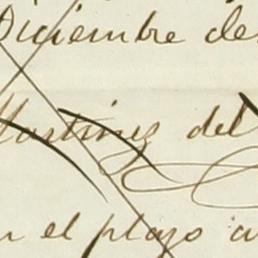 Diciembre de
Martinez del
el plazo